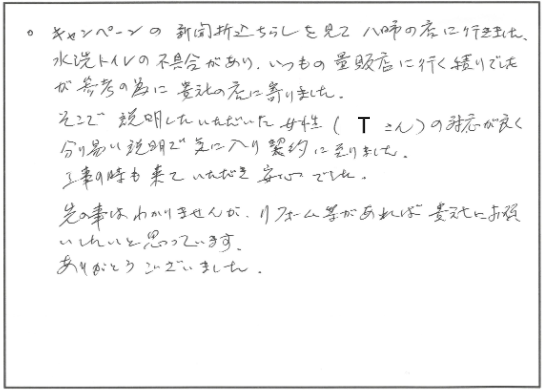 。キャンペーンの新聞折込ちらしを見て八柿の店に行きました。
水洗トイレの不具合があり、いつもの量販店に行く積りでした
が参考の為に貴社の店に寄りました。
そこで説明したいただいた女性(Tさん)の対応が良く
分り易い説明で気に入り契約に至りました。
工事の時も来ていただき安心でした。
先の事はわかりませんが、リフォーム等があれば貴社にお願
いしたいと思っています。
ありがとうございました。